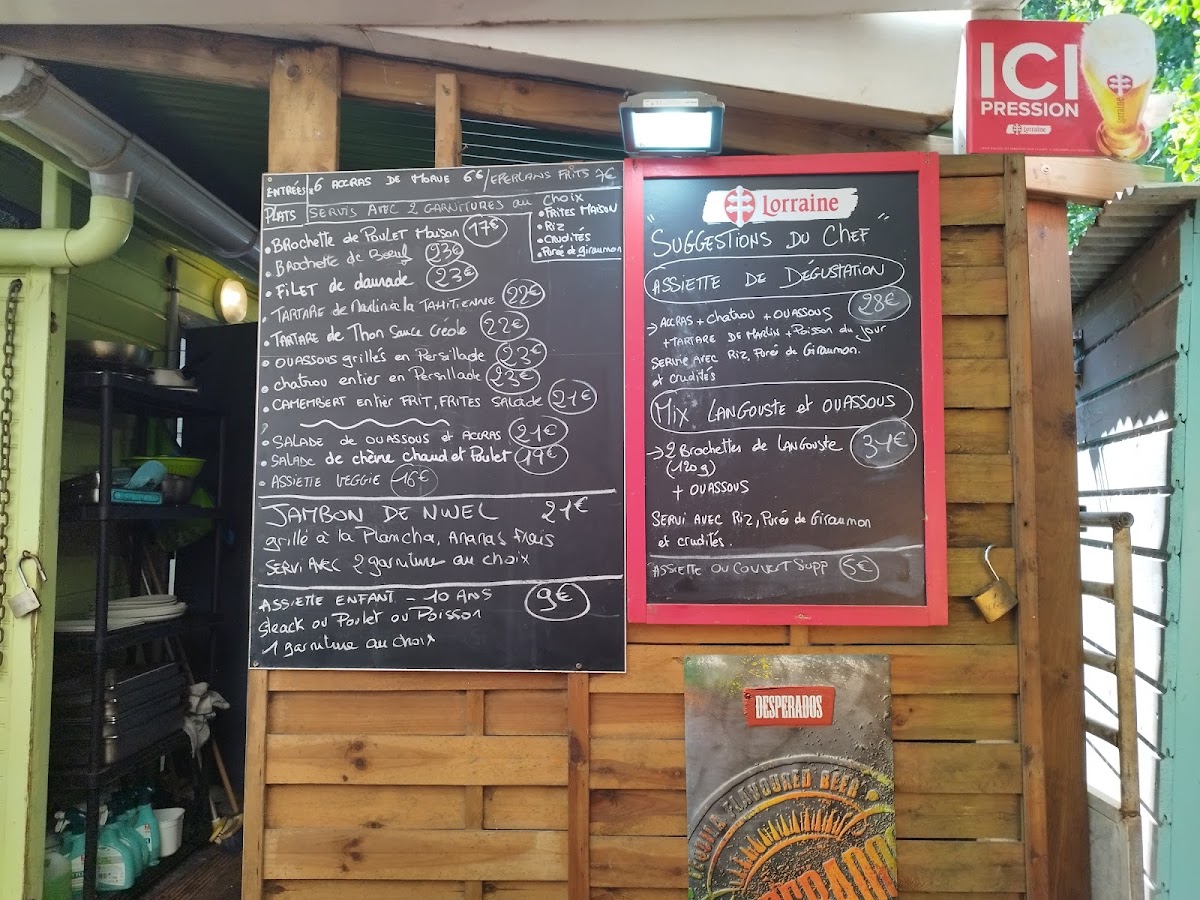 ENTRÉES 6 ACCRAS DE MORUE 6€ / EPERLANS FRITS 7€
PLATS SERVIS AVEC 2 GARNITURES au choix
• FRITES MAISON
• Riz
• CRUDITÉS
• Purée de giraumon
• BROCHETTE de POULET Maison 17€
• BROCHETTE de Boeuf 23€
• FILET de daurade 23€
• TARTARE de Marlin à la TAHITIENNE 22€
• TARTARE de Thon Sauce Créole 22€
• OUASSOUS grillés en Persillade 23€
• chatrou entier en Persillade 23€
• CAMEMBERT entier FRIT, FRITES SALADE 21€
• SALADE de OUASSOUS et ACCRAS 21€
• SALADE de chèvre chaud et Poulet 19€
• ASSIETTE VEGGIE 16€
JAMBON DE NWEL 21€
grillé à la Plancha, Ananas frais
SERVI AVEC 2 garniture au choix
ASSIETTE ENFANT - 10 ANS 9€
Steack ou Poulet ou Poisson
1 garniture au choix
Lorraine
"SUGGESTIONS DU CHEF"
ASSIETTE DE DÉGUSTATION
28€
→ ACCRAS + Chatrou + OUASSOUS
+ TARTARE DE MARLIN + Poisson du jour
SERVIE AVEC Riz, Purée de Giraumon
et crudités
MIX LANGOUSTE et OUASSOUS
→ 2 Brochettes de LANGOUSTE 34€
(120g)
+ OUASSOUS
SERVI AVEC Riz, Purée de Giraumon
et crudités.
ASSIETTE OU COUVERT SUPP 5€
ICI
PRESSION
Lorraine
Lorraine
DESPERADOS
FLAVOURED BEER